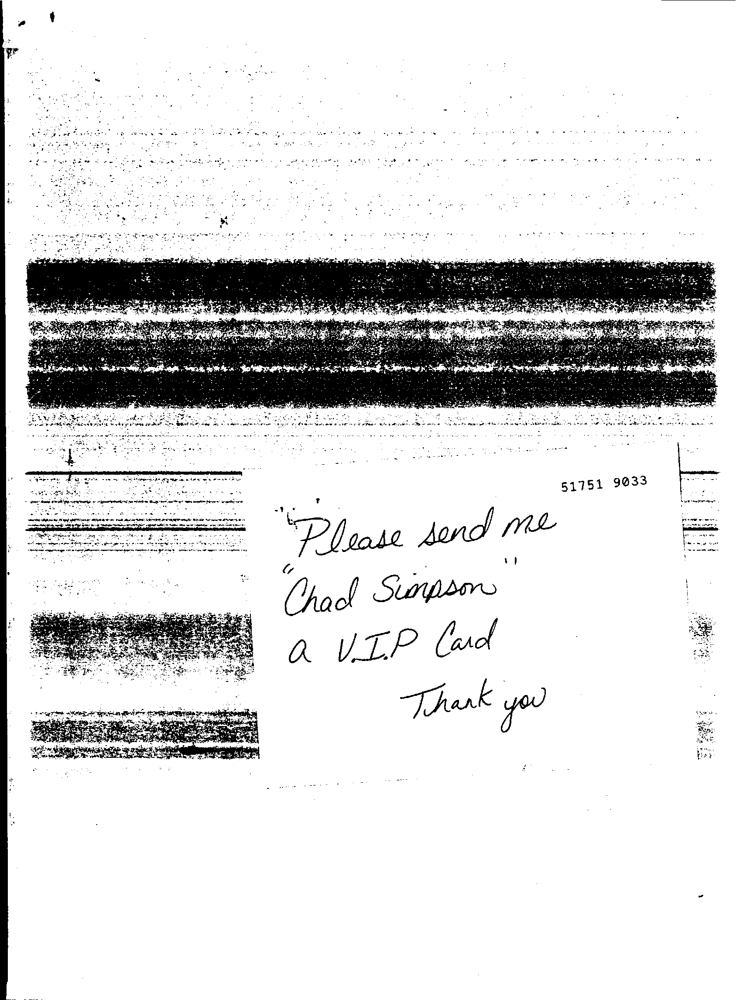 51751 9033
Please send me
"Chad Simpson"
a V.I.P Card
Thank you